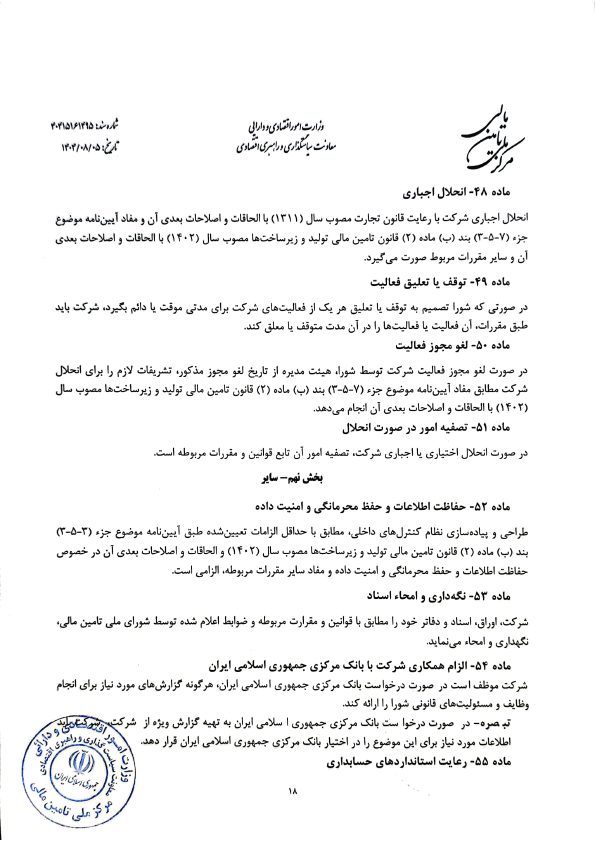 مرکز ملی تامین مالی
وزارت امور اقتصادی و دارایی
معاونت سیاستگذاری و راهبری اقتصادی
شماره سند: ۴۰۴۱۵۱۶۱۴۹۵
تاریخ: ۱۴۰۴/۰۸/۰۵
ماده ۴۸- انحلال اجباری
انحلال اجباری شرکت با رعایت قانون تجارت مصوب سال (۱۳۱۱) با الحاقات و اصلاحات بعدی آن و مفاد آیین‌نامه موضوع
جزء (۷-۵-۳) بند (ب) ماده (۲) قانون تامین مالی تولید و زیرساخت‌ها مصوب سال (۱۴۰۲) با الحاقات و اصلاحات بعدی
آن و سایر مقررات مربوط صورت می‌گیرد.
ماده ۴۹- توقف یا تعلیق فعالیت
در صورتی که شورا تصمیم به توقف یا تعلیق هر یک از فعالیت‌های شرکت برای مدتی موقت یا دائم بگیرد، شرکت باید
طبق مقررات، آن فعالیت یا فعالیت‌ها را در آن مدت متوقف یا معلق کند.
ماده ۵۰- لغو مجوز فعالیت
در صورت لغو مجوز فعالیت شرکت توسط شورا، هیئت مدیره از تاریخ لغو مجوز مذکور، تشریفات لازم را برای انحلال
شرکت مطابق مفاد آیین‌نامه موضوع جزء (۷-۵-۳) بند (ب) ماده (۲) قانون تامین مالی تولید و زیرساخت‌ها مصوب سال
(۱۴۰۲) با الحاقات و اصلاحات بعدی آن انجام می‌دهد.
ماده ۵۱- تصفیه امور در صورت انحلال
در صورت انحلال اختیاری یا اجباری شرکت، تصفیه امور آن تابع قوانین و مقررات مربوطه است.
بخش نهم- سایر
ماده ۵۲- حفاظت اطلاعات و حفظ محرمانگی و امنیت داده
طراحی و پیاده‌سازی نظام کنترل‌های داخلی، مطابق با حداقل الزامات تعیین‌شده طبق آیین‌نامه موضوع جزء (۳-۵-۳)
بند (ب) ماده (۲) قانون تامین مالی تولید و زیرساخت‌ها مصوب سال (۱۴۰۲) و الحاقات و اصلاحات بعدی آن در خصوص
حفاظت اطلاعات و حفظ محرمانگی و امنیت داده و مفاد سایر مقررات مربوطه، الزامی است.
ماده ۵۳- نگه‌داری و امحاء اسناد
شرکت، اوراق، اسناد و دفاتر خود را مطابق با قوانین و مقرارت مربوطه و ضوابط اعلام شده توسط شورای ملی تامین مالی،
نگهداری و امحاء می‌نماید.
ماده ۵۴- الزام همکاری شرکت با بانک مرکزی جمهوری اسلامی ایران
شرکت موظف است در صورت درخواست بانک مرکزی جمهوری اسلامی ایران، هرگونه گزارش‌های مورد نیاز برای انجام
وظایف و مسئولیت‌های قانونی شورا را ارائه کند.
تبصره- در صورت درخواست بانک مرکزی جمهوری اسلامی ایران به تهیه گزارش ویژه از شرکت، شرکت باید
اطلاعات مورد نیاز برای این موضوع را در اختیار بانک مرکزی جمهوری اسلامی ایران قرار دهد.
ماده ۵۵- رعایت استانداردهای حسابداری
وزارت امور اقتصادی و دارائی
معاونت سیاست گذاری و راهبری اقتصادی
جمهوری اسلامی ایران
مرکز ملی تامین مالی
۱۸